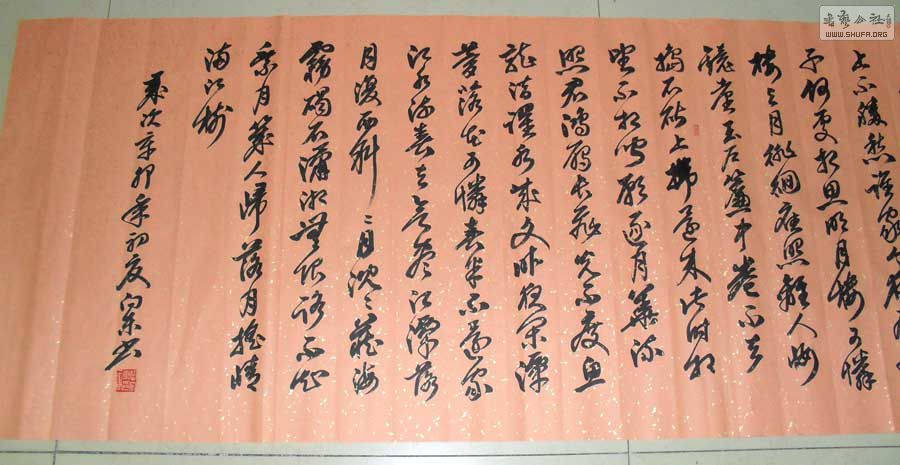 上不勝愁誰家今夜
子何處相思明月樓可憐
樓上月徘徊應照離人妝
鏡臺玉戶簾中卷不去
搗衣砧上拂還來此時相
望不相聞願逐月華流
照君鴻雁長飛光不度魚
龍潛躍水成文昨夜閑潭
夢落花可憐春半不還家
江水流春去欲盡江潭落
月復西斜〻月沈〻藏海
霧碣石瀟湘無限路不知
乘月幾人歸落月搖情
滿江樹
歲次辛卯年初夏書
书艺公社
WWW.SHUFA.ORG